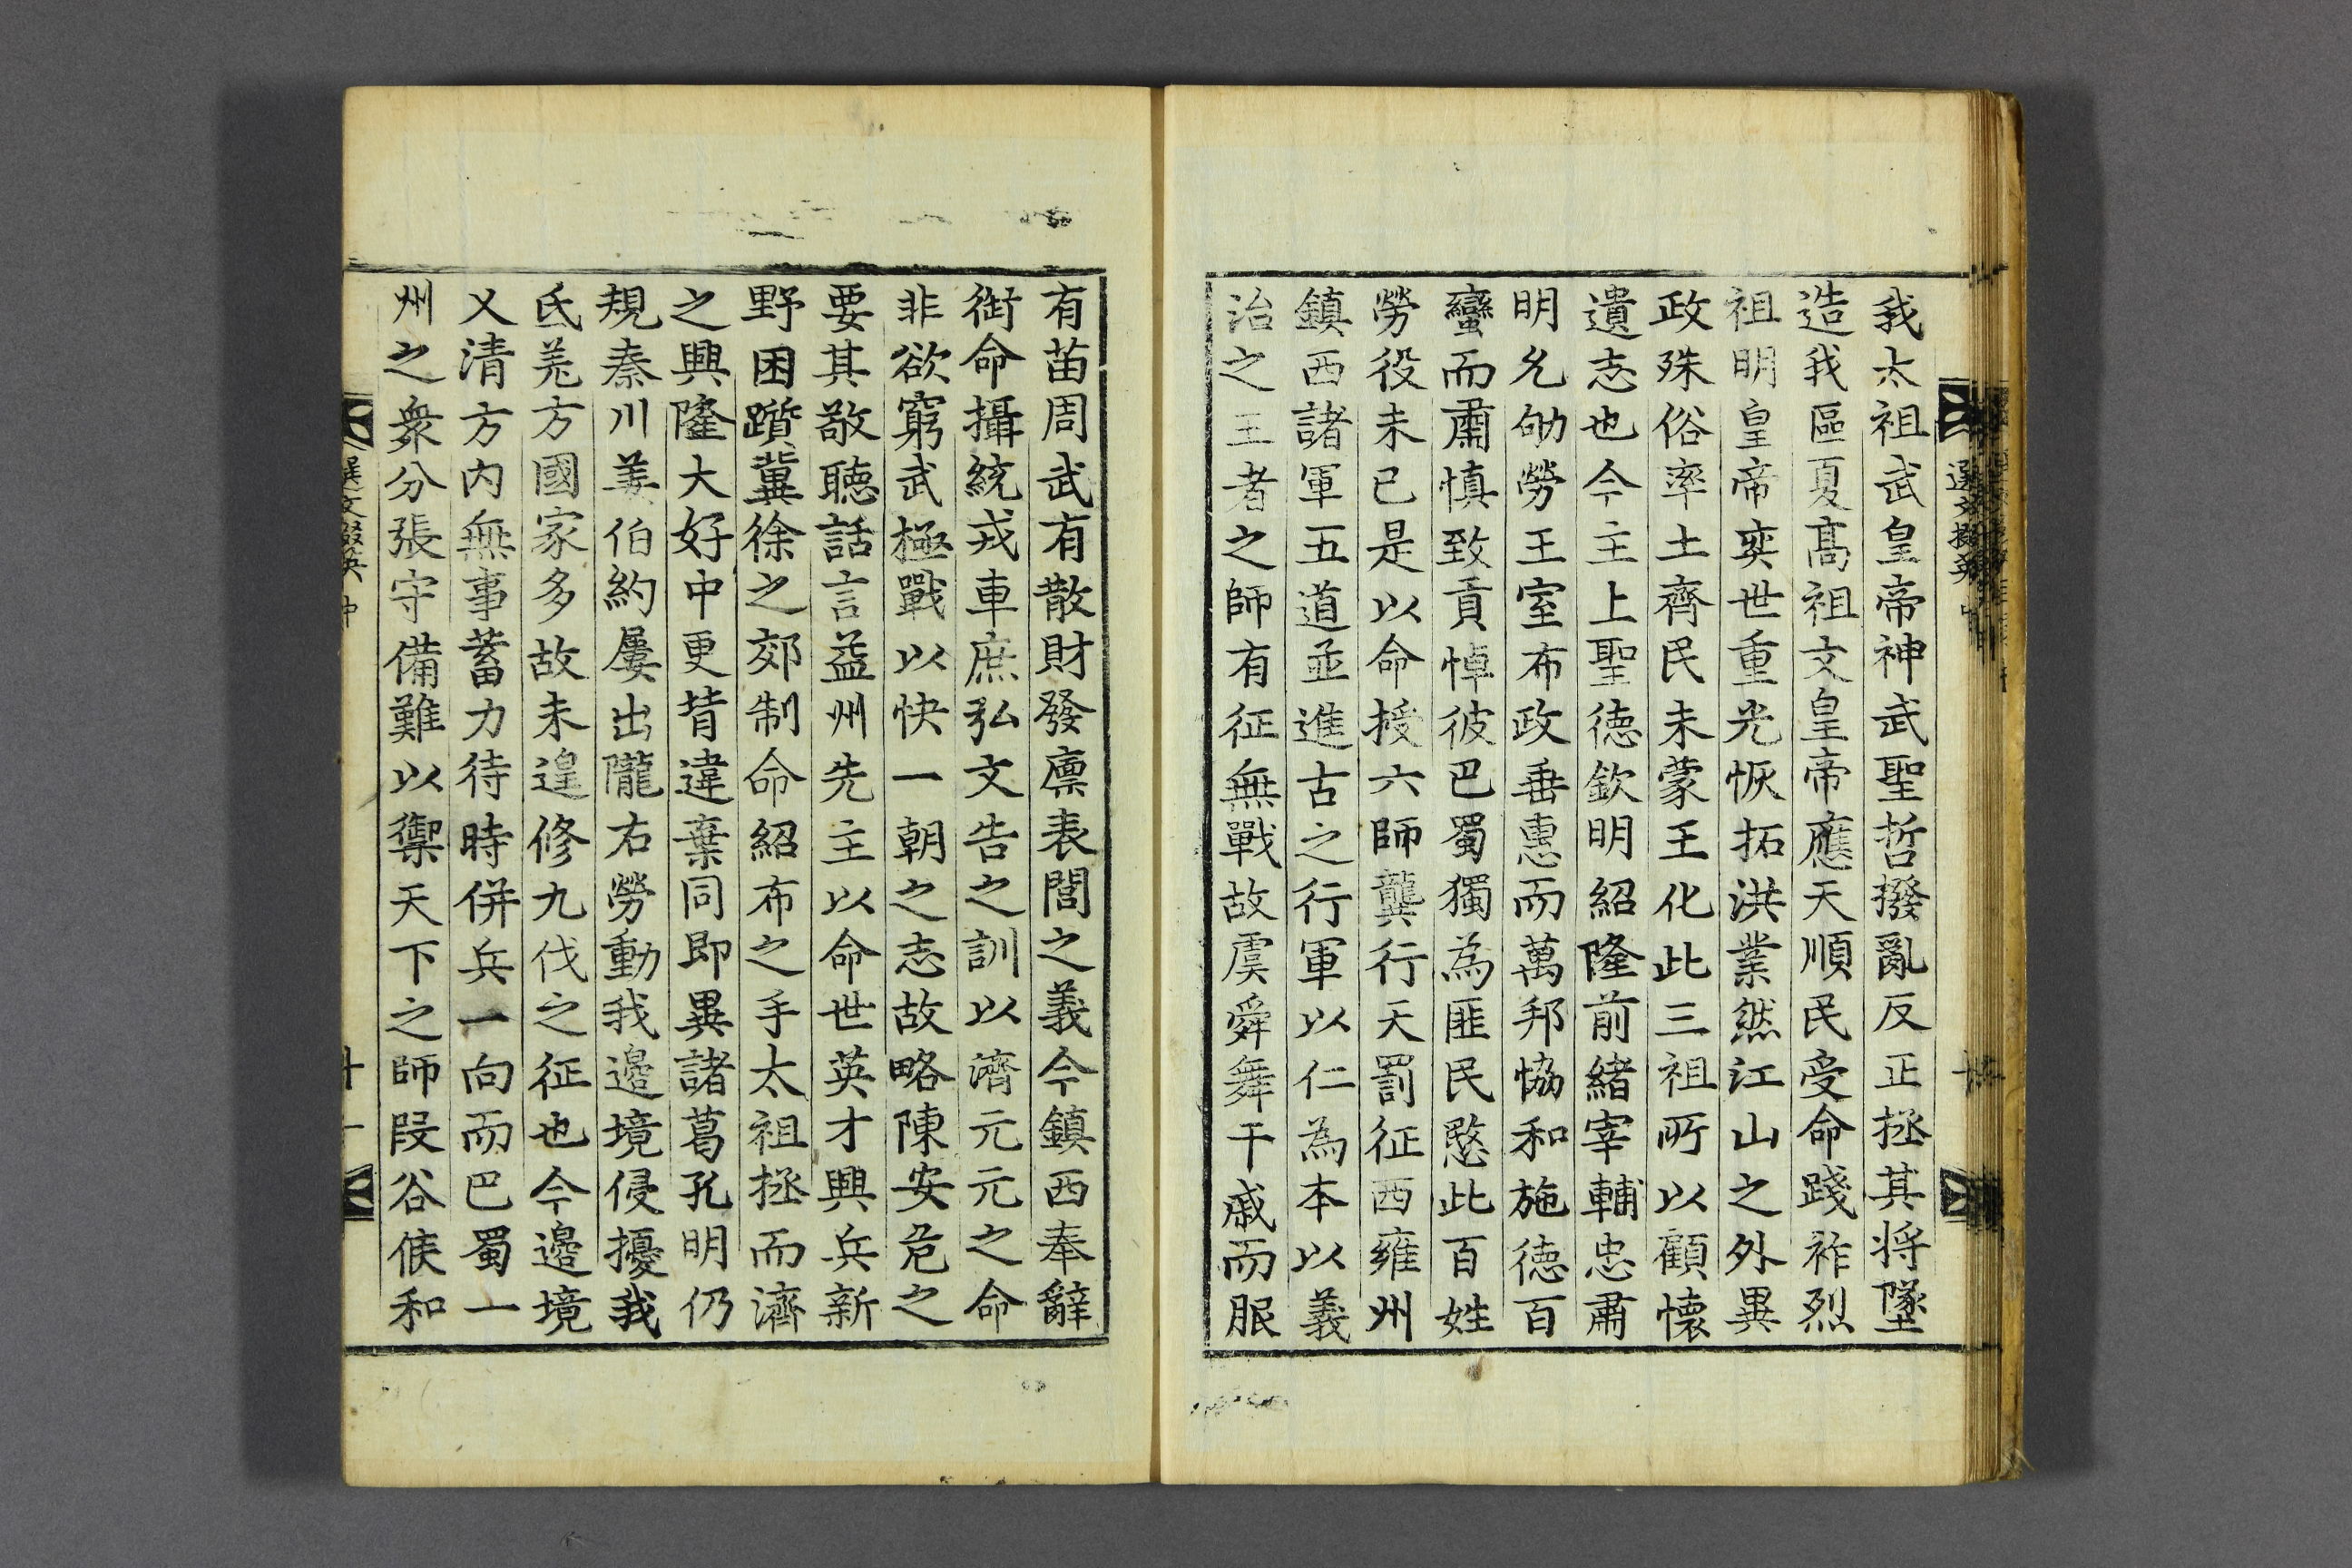 我太祖武皇帝神武聖哲撥亂反正拯其将墜
造我區夏髙祖文皇帝應天順民受命踐祚烈
祖明皇帝奕世重光恢拓洪業然江山之外異
政殊俗率土齊民未蒙王化此三祖所以顧懷
遺志也今主上聖德欽明紹隆前緒宰輔忠肅
明允劬勞王室布政垂惠而萬邦恊和施德百
蠻而肅慎致貢悼彼巴蜀獨為匪民愍此百姓
勞役未已是以命授六師龔行天罰征西雍州
鎮西諸軍五道並進古之行軍以仁為本以義
治之王者之師有征無戰故虞舜舞干戚而服
有苗周武有散財發廩表閭之義今鎮西奉辭
銜命攝統戎車庶弘文告之訓以濟元元之命
非欲窮武極戰以快一朝之志故略陳安危之
要其敬聽話言益州先主以命世英才興兵新
野困躓冀徐之郊制命紹布之手太祖拯而濟
之興隆大好中更背違棄同即異諸葛孔明仍
規秦川姜伯約屢出隴右勞動我邊境侵擾我
氐羌方國家多故未遑修九伐之征也今邊境
乂清方内無事蓄力待時併兵一向而巴蜀一
州之衆分張守備難以禦天下之師段谷侯和
選文掇英 中
十一